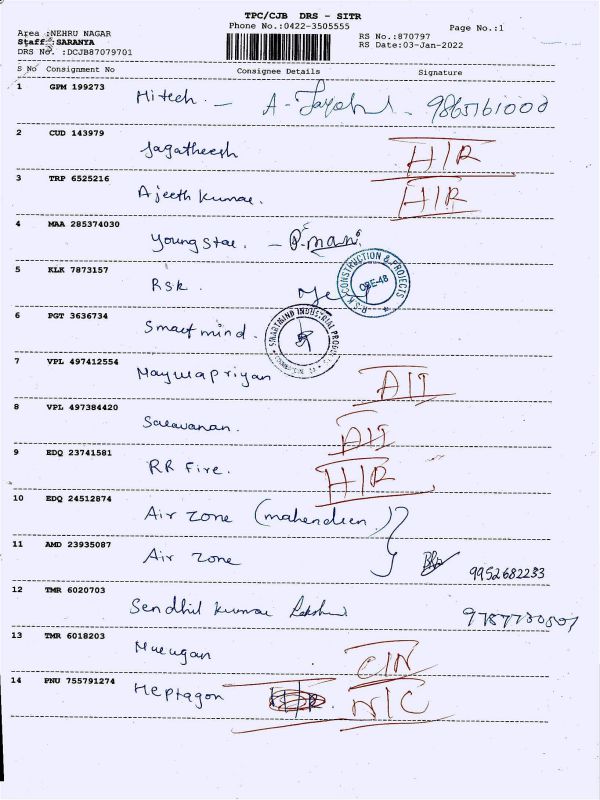 TPC/CJB DRS - SITR
Phone No.:0422-3505555
Page No.:1
Area :NEHRU NAGAR
Staff: SARANYA
DRS No. :DCJB87079701
RS No.:870797
RS Date:03-Jan-2022
S No Consignment No Consignee Details Signature
1 GPM 199273 Hitech. - 9865161000
2 CUD 143979 Jagatheesh H/R
3 TRP 6525216 Ajeeth kumar. H/R
4 MAA 285374030 Youngstar. - P.mani
5 KLK 7873157 Rsk. CONSTRUCTION & PROJECTS CBE-48
6 PGT 3636734 Smart mind. SMARTMIND INDUSTRIAL
7 VPL 497412554
8 VPL 497384420 Saravanan.
9 EDQ 23741581 RR Fire. H/R
10 EDQ 24512874 Air Zone
11 AMD 23935087 Air Zone 9952682233
12 TMR 6020703 Sendhil kumar
13 TMR 6018203 Murugan
14 PNU 755791274 Heptagon N/C